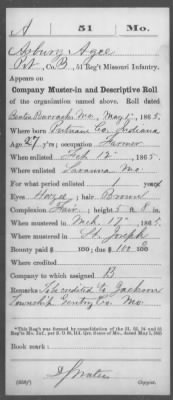 A | 51 | Mo.
Asbury Agee
Pvt, Co. B, 51 Reg't Missouri Infantry.
Appears on
Company Muster-in and Descriptive Roll
of the organization named above. Roll dated
Benton Barracks Mo, May 1, 1865.
Where born Putnam Co. Indiana
Age 27 y'rs; occupation Farmer
When enlisted Feb 12, 1865.
Where enlisted Savanna Mo.
For what period enlisted 1 years.
Eyes Hazel; hair Brown
Complexion Fair; height 5 ft. 8 in.
When mustered in Mch 17, 1865.
Where mustered in St. Joseph
Bounty paid $ 100; due $ 100
Where credited
Company to which assigned B
Remarks: To be credited to Jackson
Township Gentry Co. Mo.
*This Reg't was formed by consolidation of the 51, 52, 54 and 55
Book mark:
Copyist.